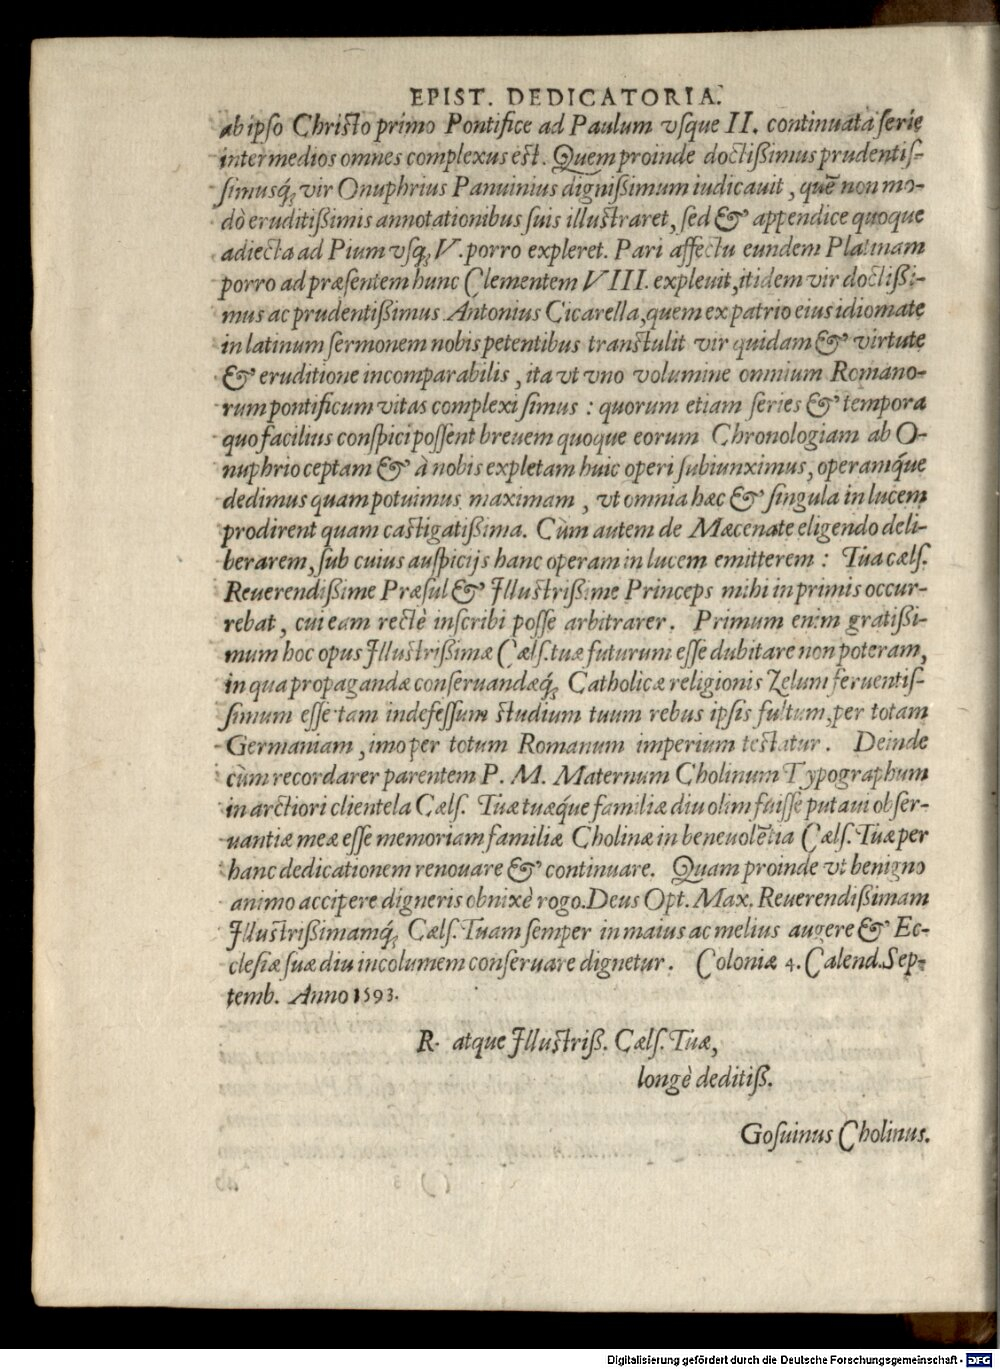 EPIST. DEDICATORIA.
ab ipſo Chriſto primo Pontifice ad Paulum vſque II. continuata ſerie
intermedios omnes complexus est. Quem proinde doctißimus prudentiſ-
ſimusq́; vir Onuphrius Panuinius dignißimum iudicauit, quē non mo-
dò eruditißimis annotationibus ſuis illustraret, ſed & appendice quoque
adiecta ad Pium vſq; V. porro expleret. Pari affectu eundem Platinam
porro ad præſentem hunc Clementem VIII. expleuit, itidem vir doctißi-
mus ac prudentißimus Antonius Cicarella, quem ex patrio eius idiomate
in latinum ſermonem nobis petentibus transtulit vir quidam & virtute
& eruditione incomparabilis, ita vt vno volumine omnium Romano-
rum pontificum vitas complexi ſimus : quorum etiam ſeries & tempora
quo facilius conſpici poſſent breuem quoque eorum Chronologiam ab O-
nuphrio ceptam & à nobis expletam huic operi ſubiunximus, operamq́ue
dedimus quam potuimus maximam, vt omnia hæc & ſingula in lucem
prodirent quam castigatißima. Cùm autem de Mæcenate eligendo deli-
berarem, ſub cuius auſpicijs hanc operam in lucem emitterem : Tua cælſ.
Reuerendißime Præſul & Illustrißime Princeps mihi in primis occur-
rebat, cui eam rectè inſcribi poſſe arbitrarer. Primum enim gratißi-
mum hoc opus Illustrißimæ Cælſ. tuæ futurum eſſe dubitare non poteram,
in qua propagandæ conſeruandæq́; Catholicæ religionis Zelum feruentiſ-
ſimum eſſe tam indefeſſum studium tuum rebus ipſis fultum, per totam
Germaniam, imo per totum Romanum imperium testatur. Deinde
cùm recordarer parentem P. M. Maternum Cholinum Typographum
in arctiori clientela Cælſ. Tuæ tuæq́ue familiæ diu olim fuiſſe putaui obſer-
uantiæ meæ eſſe memoriam familiæ Cholinæ in beneuolētia Cælſ. Tuæ per
hanc dedicationem renouare & continuare. Quam proinde vt benigno
animo accipere digneris obnixè rogo. Deus Opt. Max. Reuerendißimam
Illustrißimamq́; Cælſ. Tuam ſemper in maius ac melius augere & Ec-
cleſiæ ſuæ diu incolumem conſeruare dignetur. Coloniæ 4. Calend. Sep-
temb. Anno 1593.
R. atque Illustriß. Cælſ. Tuæ,
longè deditiß.
Goſuinus Cholinus.
Digitalisierung gefördert durch die Deutsche Forschungsgemeinschaft - DFG